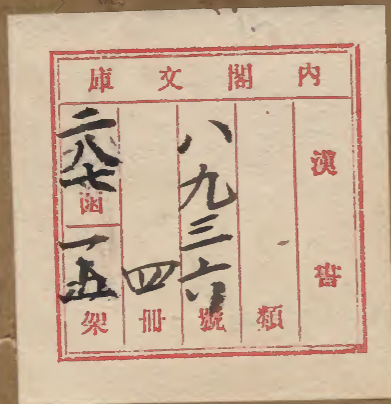 內閣文庫
漢書
類
八九三六號
四冊
二八七函
一五架